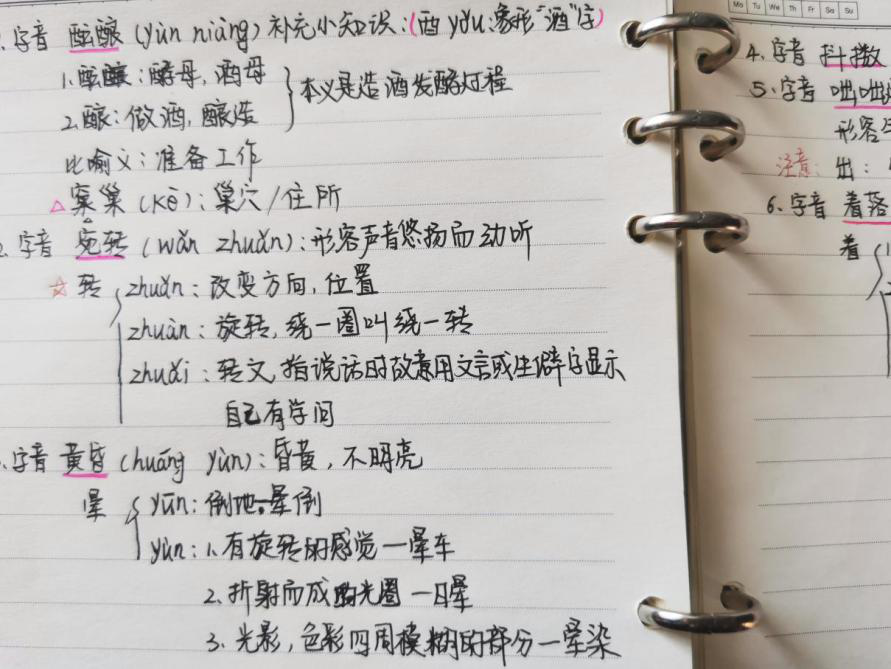 字音 酝酿 (yùn niàng) 补充小知识:(酉 yǒu:象形"酒"字)
1.酝酿:酵母,酒母
2.酿:做酒,酿造
本义是造酒发酵过程
比喻义:准备工作
△窠巢(kē):巢穴/住所
字音 宛转(wǎn zhuǎn):形容声音悠扬而动听
☆转 zhuǎn:改变方向,位置
zhuàn:旋转,绕一圈叫绕一转
zhuǎi:转文,指说话时故意用文言或生僻字显示
自己有学问
字音 黄昏(huāng yùn):昏黄,不明亮
晕 yūn:倒地。晕倒
yùn:1.有旋转的感觉—晕车
2.折射而成的光圈—日晕
3.光影,色彩四周模糊的部分—晕染
Mo Tu We Th Fr Sa Su
4.字音 抖擞
5.字音 咄咄
形容
注意:出:
6.字音 着落
着